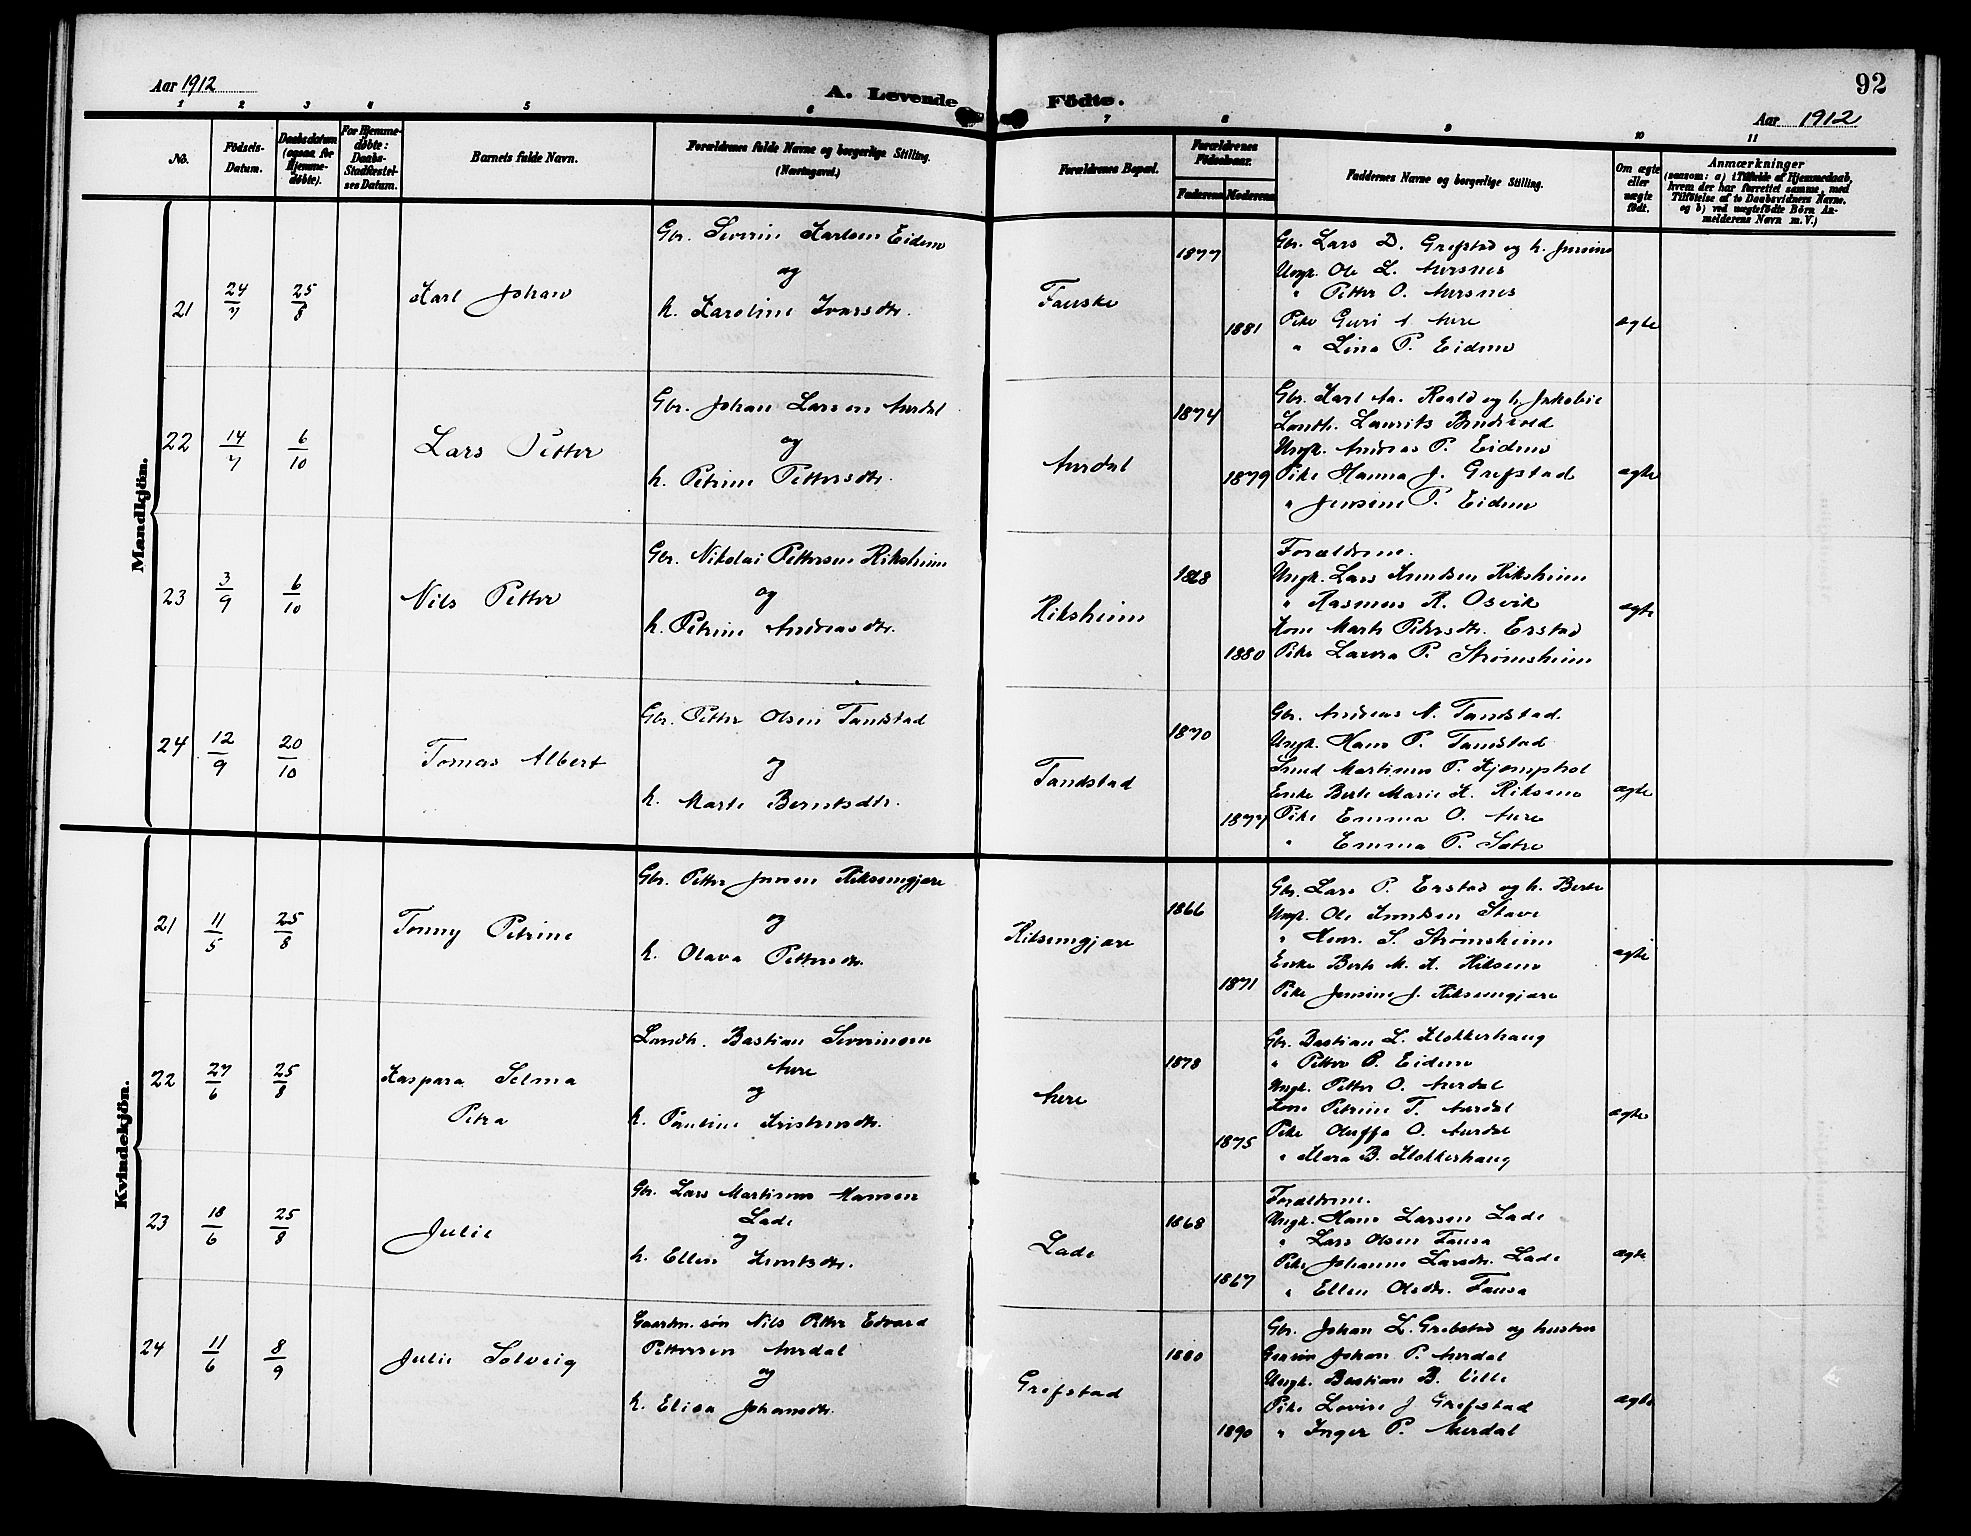 Aar 1912
A. Levende Fødte.
92
Aar 1912
1 2 3 4 5 6 7 8 9 10 11
No.
Fødsels-
Datum.
Daabsdatum
(ogsaa for
Hjemme-
døbte).
For Hjemme-
døbte:
Daabs-
Stadfæstel-
ses Datum.
Barnets fulde Navn.
Forældrenes fulde Navne og borgerlige Stilling.
(Næringsvei.)
Forældrenes Bopæl.
Forældrenes
Fødselsaar.
Faderens Moderens
Faddernes Navne og borgerlige Stilling.
Om ægte
eller
uægte
født.
Anmærkninger
(saasom: a) i Tilfælde af Hjemmedaab,
hvem der har forrettet samme, med
Tilføielse af to Daabsvidners Navne.
og b) ved uægtefødte Børn An-
melderens Navn m. V.)
Mandkjön.
21 24/7 25/8 Karl Johan
Gbr. Severin Karlsen Eidem
og
h. Karoline Ivarsdtr.
Fauske
1877
1881
Gbr. Lars D. Grefstad og h. Jensine
Ungk. Ole L. Aursnes
" Petter O. Aursnes
Pike Guri A Aure
" Lina P. Eidem
ægte
22 14/7 6/10 Lars Petter
Gbr. Johan Larsen Aurdal
og
h. Petrine Pettersdtr.
Aurdal
1874
1879
Gbr. Karl Aa. Roald og h. Jakobie
Landh. Laurits Brudevold
Ungk. Andreas P. Eidem
Pike Hanna J. Grefstad
" Jensine P. Eidem
ægte
23 3/9 6/10 Nils Petter
Gbr. Nikolai Pettersen Riksheim
og
h. Petrine Andreasdtr.
Riksheim
1868
1880
Forældrene.
Ungk. Lars Knudsen Riksheim
" Rasmus R. Osvik
Kone Marte Pedersdtr. Erstad
Pike Laura P. Strømsheim
ægte
24 12/9 20/10 Tomas Albert
Gbr. Petter Olsen Tandstad
og
h. Marte Berntsdtr.
Tandstad
1870
1877
Gbr. Andreas N. Tandstad.
Ungk. Hans P. Tandstad
Smed Martinus P. Kjemphol
Enke Berte Marie K. Riksem
Pike Emma O. Aure
" Emma P. Sætre
ægte
Kvindekjön.
21 11/5 25/8 Tonny Petrine
Gbr. Petter Jensen Riksemgjære
og
h. Olava Pettersdtr.
Riksemgjære
1866
1871
Gbr. Lars P. Erstad og h. Berte
Ungk. Ole Knudsen Stave
" Henr. S. Strømsheim
Enke Berte M. K. Riksem
Pike Jensine J. Riksemgjære
ægte
22 27/6 25/8 Kaspara Selma
Petra
Landh. Bastian Severinsen
Aure
og
h. Pauline Kristensdtr.
Aure
1878
1875
Gbr. Bastian L. Klokkerhaug
" Petter P. Eidem
Ungk. Petter O. Aurdal
Kone Petrine T. Aurdal
Pike Oluffa O. Aurdal
" Klara B. Klokkerhaug
ægte
23 18/6 25/8 Julie
Gbr. Lars Martinus Hansen
Lade
og
h. Ellen Knutsdtr.
Lade
1868
1867
Forældrene.
Ungk. Hans Larsen Lade
" Lars Olsen Fausa
Pike Johanne Larsdtr. Lade
" Ellen Olsdtr. Fausa
ægte
24 11/6 8/9 Julie Solveig
Gaardm. søn Nils Petter Edvard
Pettersen Aurdal
og
h. Elisa Johansdtr.
Grefstad
1880
1890
Gbr. Johan L. Grebstad og hustru
Johan P. Aurdal
Ungk. Bastian B. Velle
Pike Lovise J Grefstad
" Inger P. Aurdal
ægte